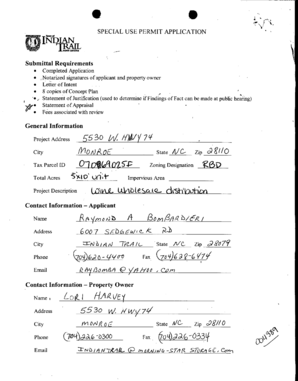 SPECIAL USE PERMIT APPLICATION
INDIAN
TRAIL
Submittal Requirements
• Completed Application
• Notarized signatures of applicant and property owner
• Letter of Intent
• 8 copies of Concept Plan
• Statement of Justification (used to determine if Findings of Fact can be made at public hearing)
• Statement of Appraisal
• Fees associated with review
General Information
Project Address 5530 W. HWY 74
City MONROE State NC Zip 28110
Tax Parcel ID Zoning Designation RBD
Total Acres 5x10 unit Impervious Area
Project Description Wine wholesale distribution
Contact Information – Applicant
Name RAYMOND A BOMBARDIERI
Address 6007 SEDGEWICK RD
City INDIAN TRAIL State NC Zip 28079
Phone (704)620-4407 Fax (704)628-6474
Email RAYBOMBA @ YAHOO.COM
Contact Information – Property Owner
Name LORI HARVEY
Address 5530 W. HWY 74
City MONROE State NC Zip 28110
Phone (704)226-0300 Fax (704)226-0334
Email INDIANTRAIL @ MORNING-STAR STORAGE.COM